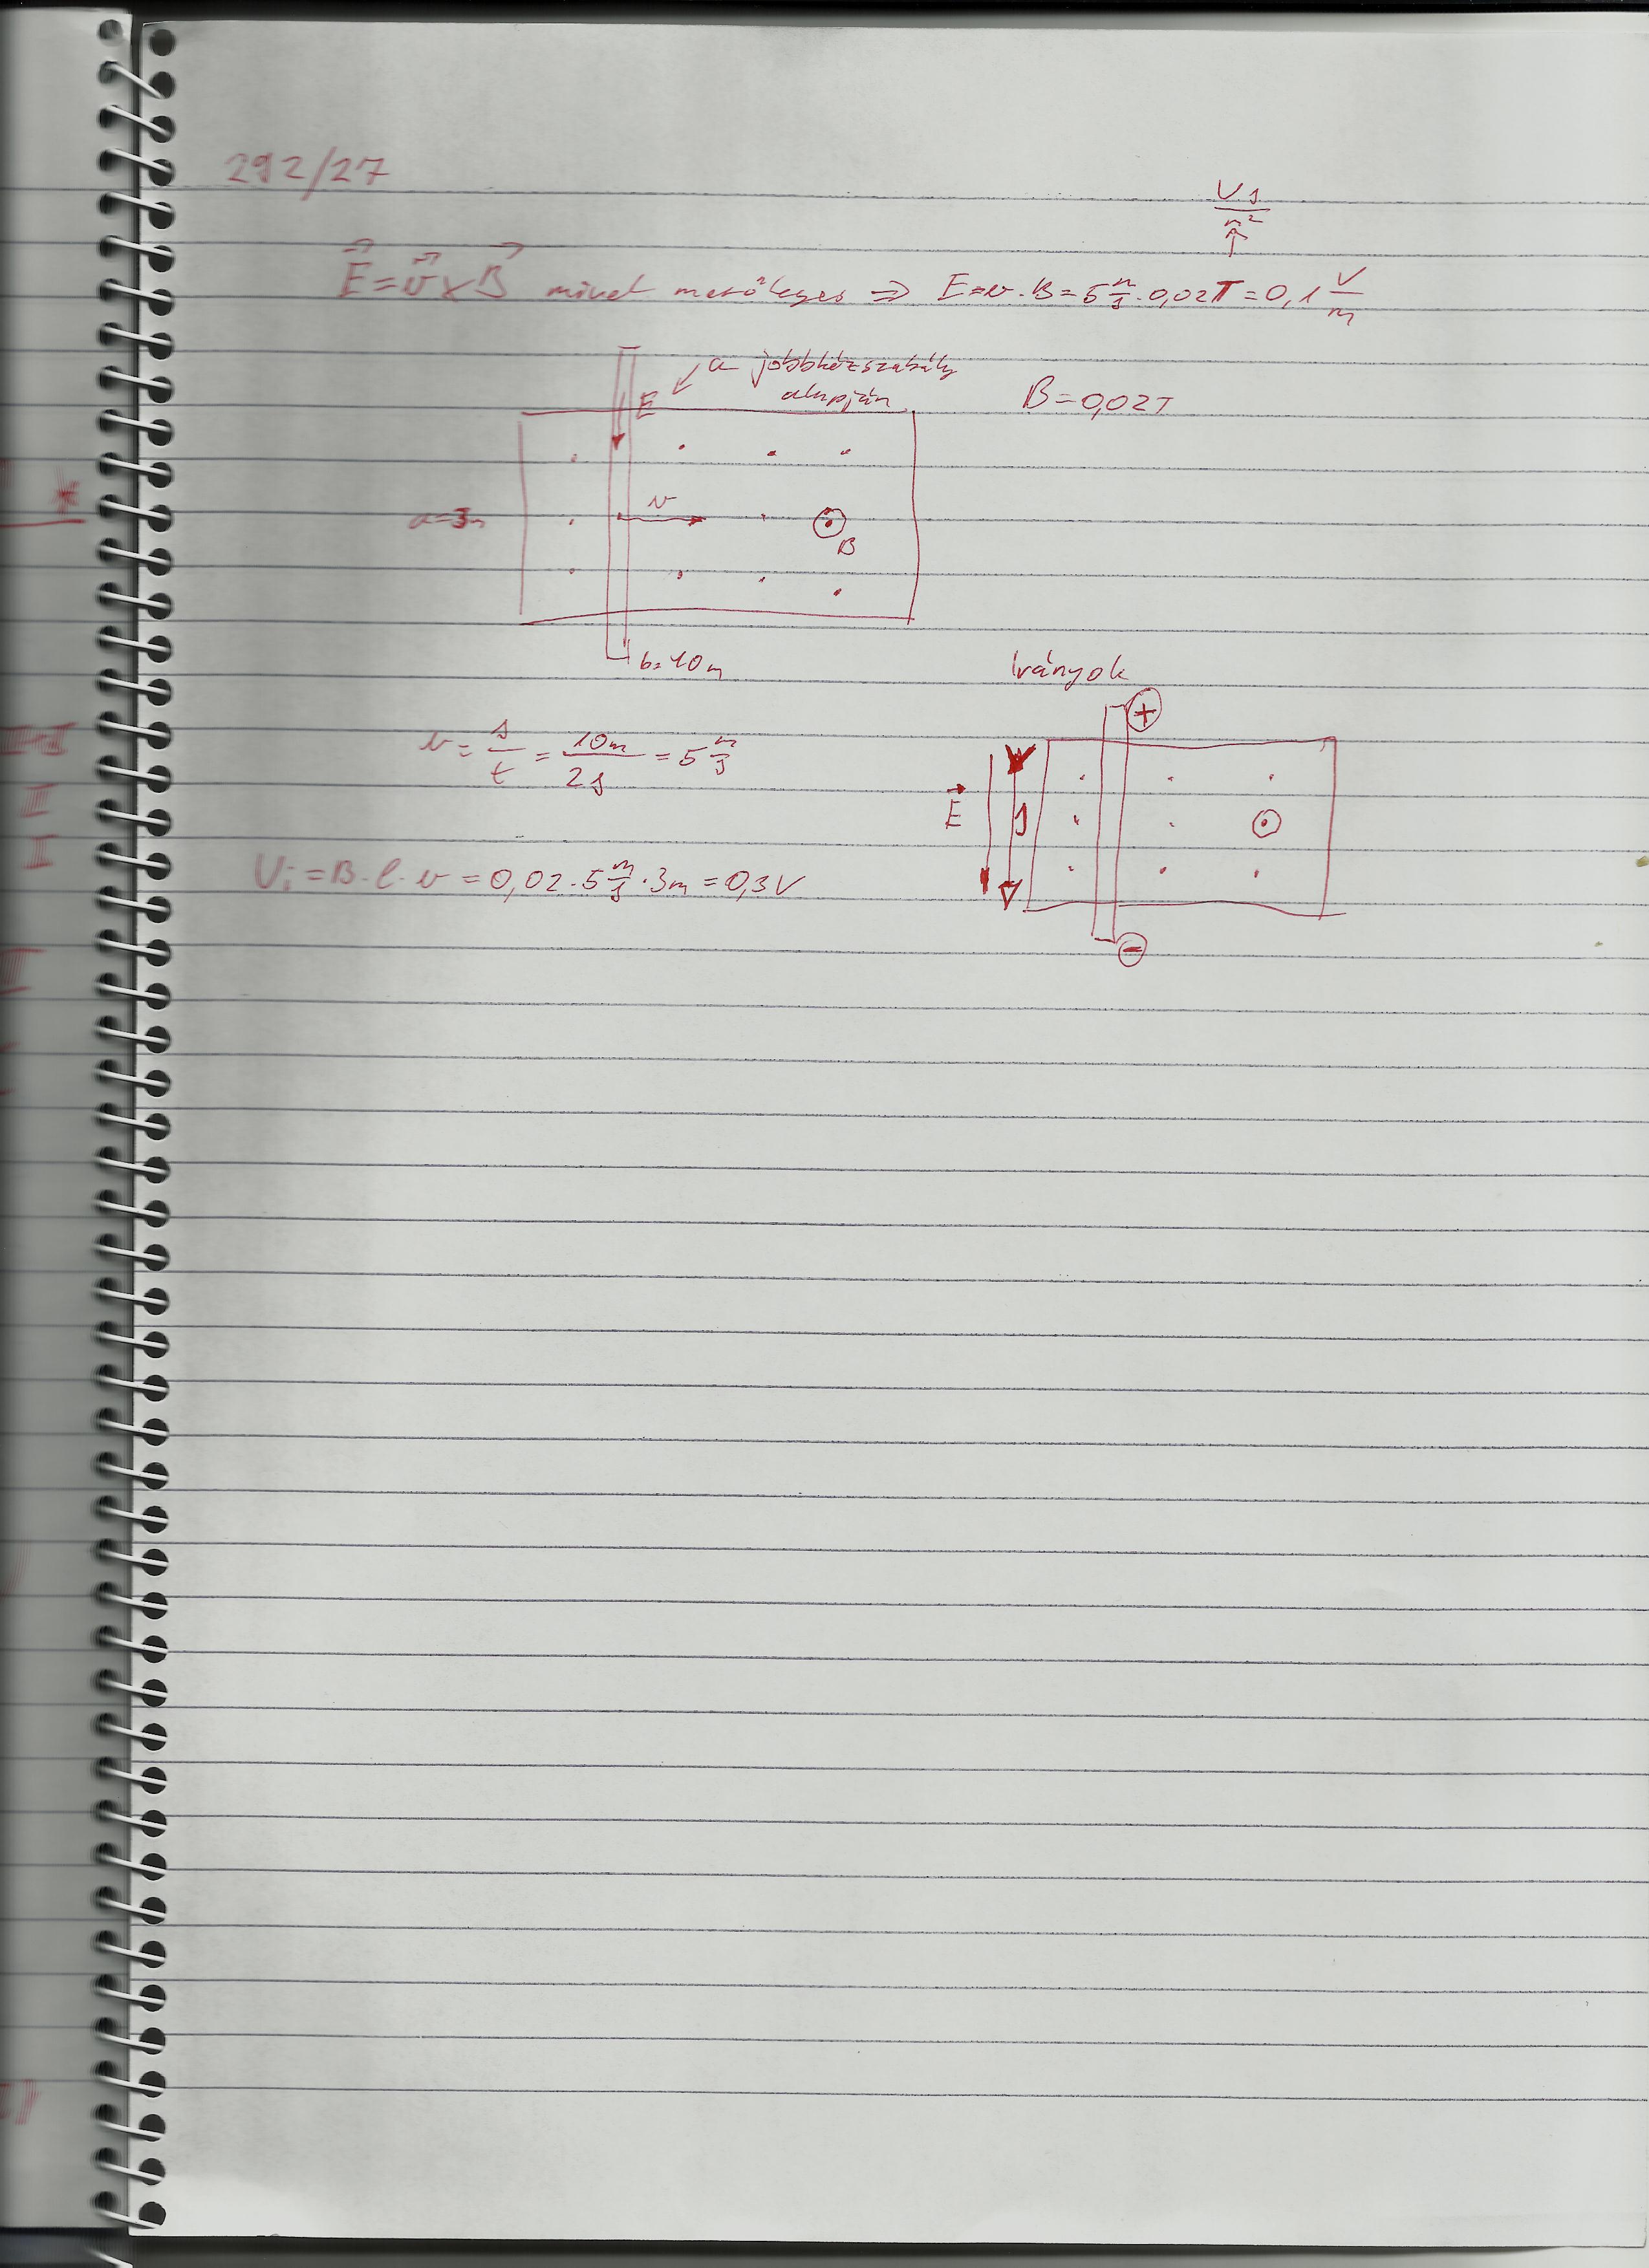 292/27
V·s
m²
E = v × B mivel merőleges ⇒ E = v · B = 5 m/s · 0,02T = 0,1 V/m
E a jobbkézszabály
alapján
B = 0,02T
v
a=3m
B
b=10m
Irányok
+
v = s/t = 10m/2s = 5 m/s
E
J
Ui = B · l · v = 0,02 · 5 m/s · 3m = 0,3V
-